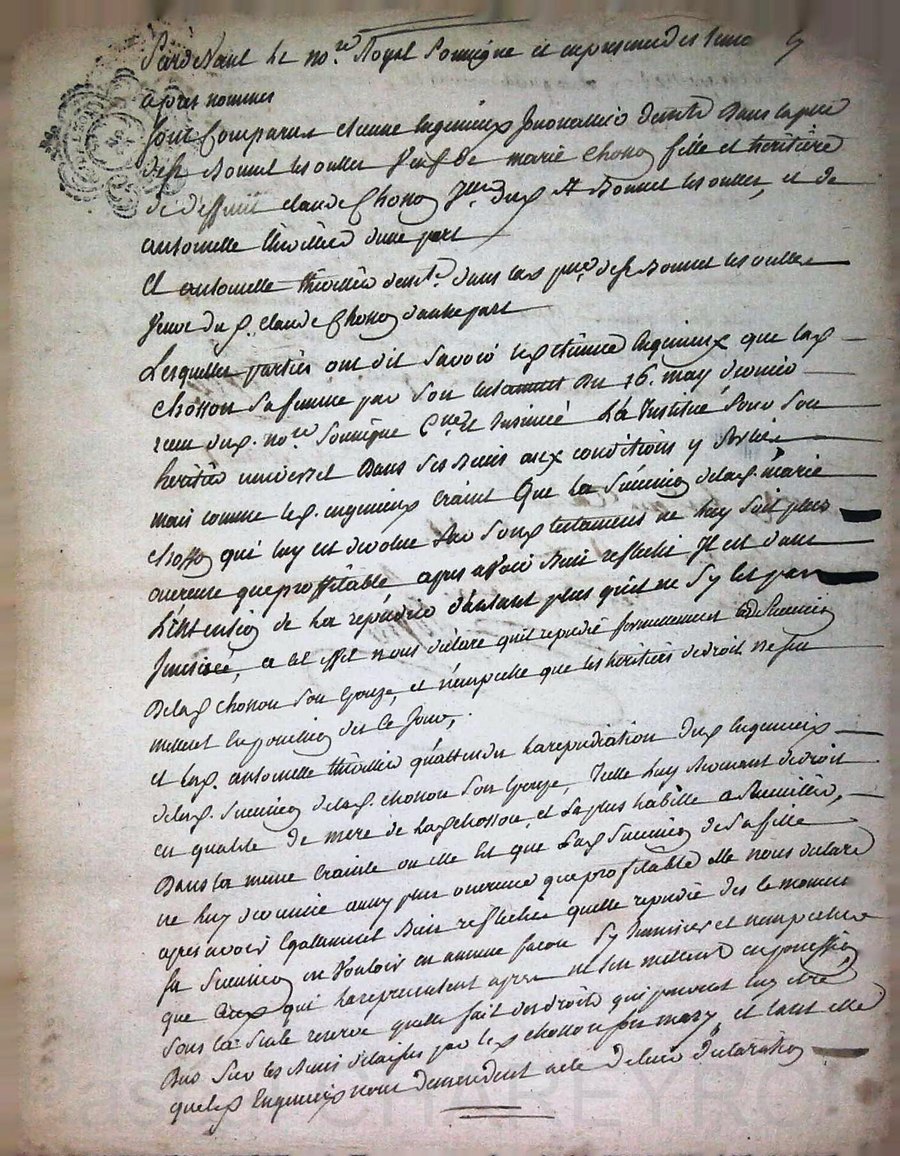 Pardevant le no.re Royal soussigné et en presence des temo
apres nommes
sont comparus etienne Ingenieux dans la par
de st Bonnet les oulles veuf de marie Chosson fille et heritiere
de deffunt claude Chosson de st Bonnet les oulles, et de
antoinette thiollier d'une part
Et antoinette thiollier dem.te dans la de st Bonnet les oulles
veuve du claude Chosson d'autre part
Lesquelles parties ont dit savoir led etienne Ingenieux que lad
chosson sa femme par son testament du 16. may dernier
recu dud. no.re soussigné et insinué l'a institué pour son
heritier universel dans ses biens aux conditions y
mais comme led. ingenieux craint que la succession de lad. marie
chosson qui luy est devolue par son testament ne luy soit plus
onereuse que proffitable apres avoir bien reflechi Il est dans
L'intention de la repudier d'autant plus qu'il ne s'y est pas
Immiscé, a cet effet nous declare qu'il repudie formellement la succession
de lad chosson son epouze, et n'empeche que les heritiers de droit ne se
mettent en possession des ce jour,
et lad. antoinette thiollier qu'attendu la repudiation dud Ingenieux
de lad. succession de lad. chosson son epouze, Icelle luy de droit
en qualité de mere de lad chosson, et la plus habille a succeder,
Dans la meme crainte ou elle est que lad succession de sa fille
ne luy devienne aussy plus onereuse que profitable elle nous declare
apres avoir egalement bien reflechie quelle repudie des le moment
sa succession ne vouloir en aucune facon s'y Immiscer et n'empeche
que ceux qui la representent apres ne s'en mettent en possession
sous la seule reserve quelle fait des droits qui peuvent luy etre
Dus sur les biens delaisses par led chosson son mary, et tant elle
que led Ingenieux nous demendent acte de leur declaration